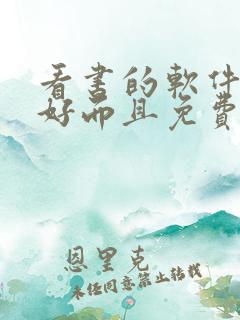 看书的軟件
好而且免費
恩里克
未经同意禁止转载